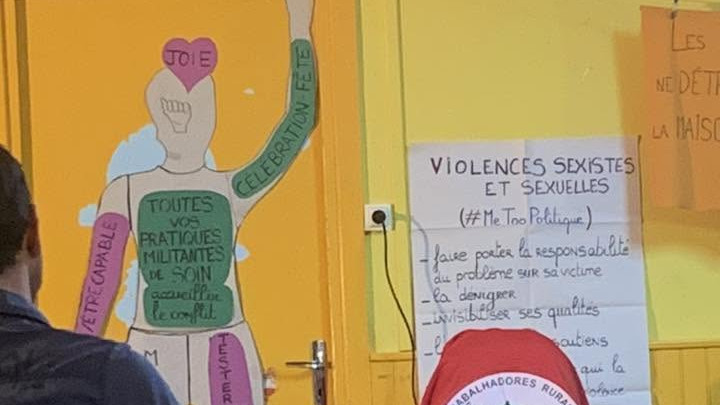 JOIE
CÉLÉBRATION-FÊTE
TOUTES
VOS
PRATIQUES
MILITANTES
DE SOIN
accueillir
le conflit
ÊTRE CAPABLE
M
TESTER
VIOLENCES SEXISTES
ET SEXUELLES
(#MeTooPolitique)
- faire porter la responsabilité
du problème sur sa victime
- la dénigrer
- invisibiliser ses qualités
qui la
LES
NE
LA MAISO
RURA